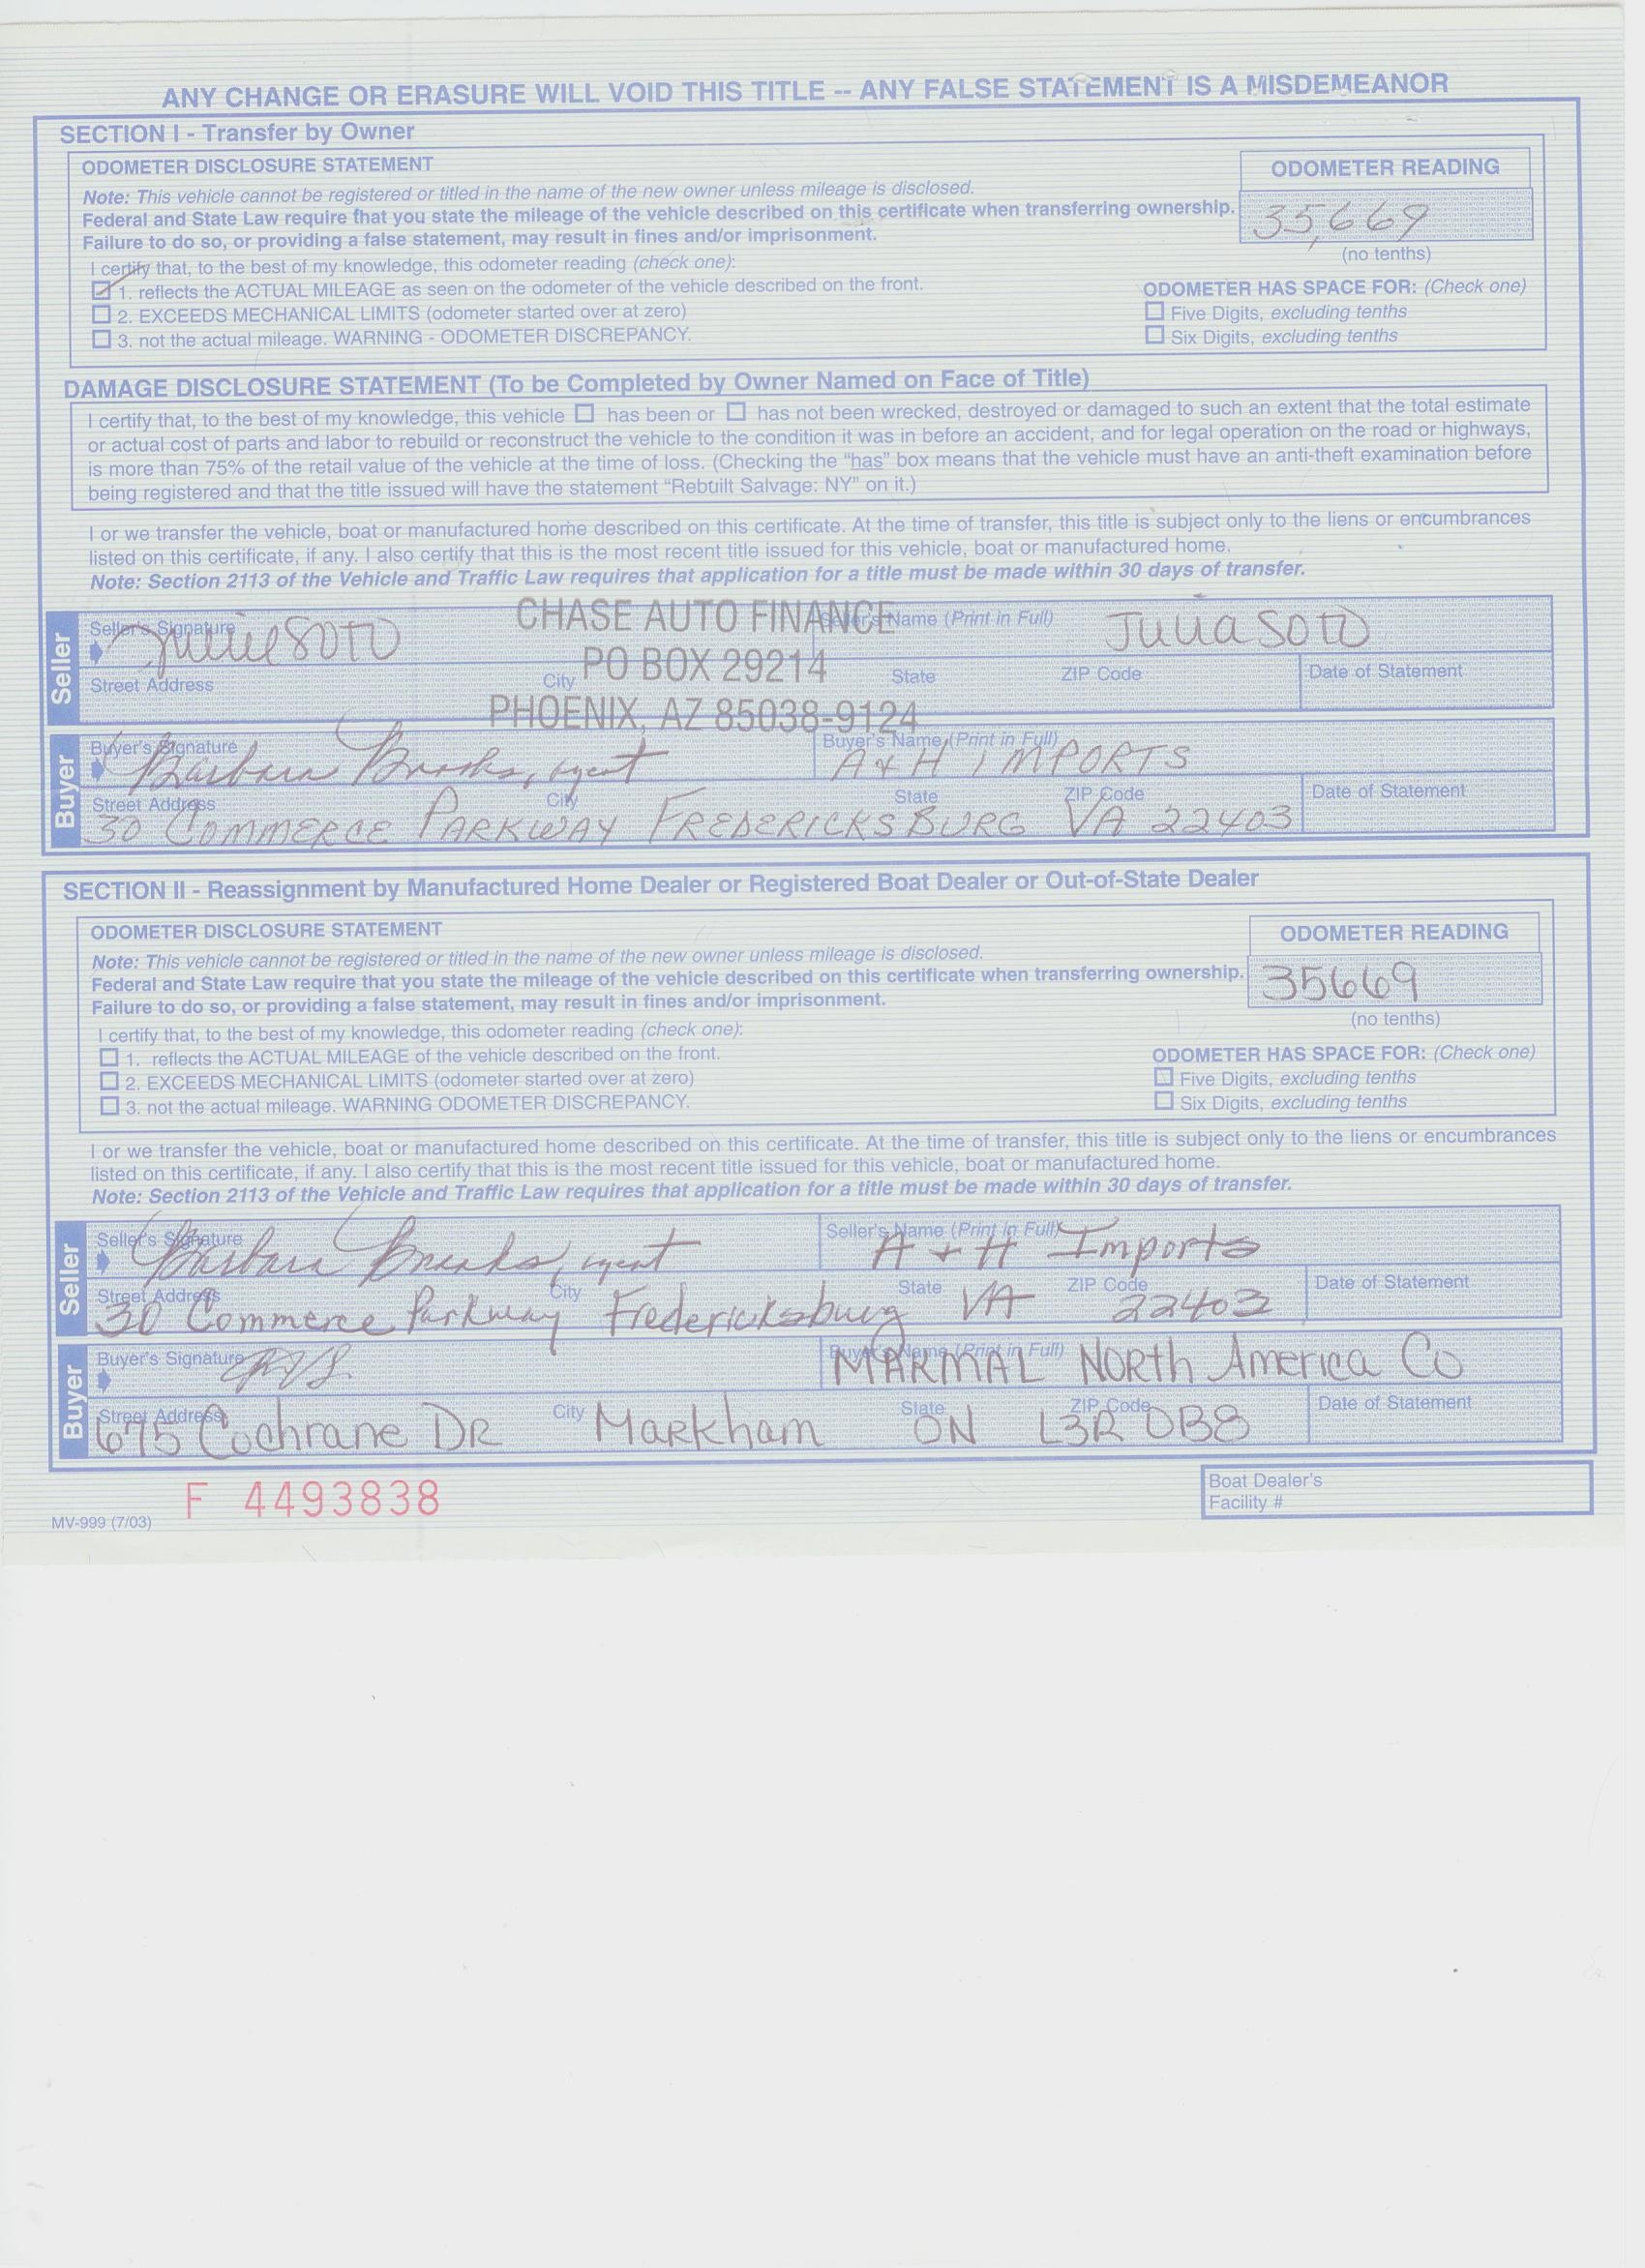 ANY CHANGE OR ERASURE WILL VOID THIS TITLE -- ANY FALSE STATEMENT IS A MISDEMEANOR
SECTION I - Transfer by Owner
ODOMETER DISCLOSURE STATEMENT
Note: This vehicle cannot be registered or titled in the name of the new owner unless mileage is disclosed.
Federal and State Law require that you state the mileage of the vehicle described on this certificate when transferring ownership.
Failure to do so, or providing a false statement, may result in fines and/or imprisonment.
ODOMETER READING
35,669
(no tenths)
I certify that, to the best of my knowledge, this odometer reading (check one):
1. reflects the ACTUAL MILEAGE as seen on the odometer of the vehicle described on the front.
2. EXCEEDS MECHANICAL LIMITS (odometer started over at zero)
3. not the actual mileage. WARNING - ODOMETER DISCREPANCY.
ODOMETER HAS SPACE FOR: (Check one)
Five Digits, excluding tenths
Six Digits, excluding tenths
DAMAGE DISCLOSURE STATEMENT (To be Completed by Owner Named on Face of Title)
I certify that, to the best of my knowledge, this vehicle has been or has not been wrecked, destroyed or damaged to such an extent that the total estimate
or actual cost of parts and labor to rebuild or reconstruct the vehicle to the condition it was in before an accident, and for legal operation on the road or highways,
is more than 75% of the retail value of the vehicle at the time of loss. (Checking the “has” box means that the vehicle must have an anti-theft examination before
being registered and that the title issued will have the statement “Rebuilt Salvage: NY” on it.)
I or we transfer the vehicle, boat or manufactured home described on this certificate. At the time of transfer, this title is subject only to the liens or encumbrances
listed on this certificate, if any. I also certify that this is the most recent title issued for this vehicle, boat or manufactured home.
Note: Section 2113 of the Vehicle and Traffic Law requires that application for a title must be made within 30 days of transfer.
CHASE AUTO FINANCE
PO BOX 29214
PHOENIX, AZ 85038-9124
Seller
Seller's Signature Seller's Name (Print in Full)
Soto Julia Soto
Street Address City State ZIP Code Date of Statement
Buyer
Buyer's Signature Buyer's Name (Print in Full)
Barbara Brooks, agent A & H IMPORTS
Street Address City State ZIP Code Date of Statement
30 COMMERCE PARKWAY FREDERICKSBURG VA 22403
SECTION II - Reassignment by Manufactured Home Dealer or Registered Boat Dealer or Out-of-State Dealer
ODOMETER DISCLOSURE STATEMENT
Note: This vehicle cannot be registered or titled in the name of the new owner unless mileage is disclosed.
Federal and State Law require that you state the mileage of the vehicle described on this certificate when transferring ownership.
Failure to do so, or providing a false statement, may result in fines and/or imprisonment.
ODOMETER READING
35669
(no tenths)
I certify that, to the best of my knowledge, this odometer reading (check one):
1. reflects the ACTUAL MILEAGE of the vehicle described on the front.
2. EXCEEDS MECHANICAL LIMITS (odometer started over at zero)
3. not the actual mileage. WARNING ODOMETER DISCREPANCY.
ODOMETER HAS SPACE FOR: (Check one)
Five Digits, excluding tenths
Six Digits, excluding tenths
I or we transfer the vehicle, boat or manufactured home described on this certificate. At the time of transfer, this title is subject only to the liens or encumbrances
listed on this certificate, if any. I also certify that this is the most recent title issued for this vehicle, boat or manufactured home.
Note: Section 2113 of the Vehicle and Traffic Law requires that application for a title must be made within 30 days of transfer.
Seller
Seller's Signature Seller's Name (Print in Full)
Barbara Brooks, agent A + H Imports
Street Address City State ZIP Code Date of Statement
30 Commerce Parkway Fredericksburg VA 22403
Buyer
Buyer's Signature Buyer's Name (Print in Full)
MARMAL NORth AmericA Co
Street Address City State ZIP Code Date of Statement
675 Cochrane DR Markham ON L3R 0B8
F 4493838
MV-999 (7/03)
Boat Dealer's
Facility #